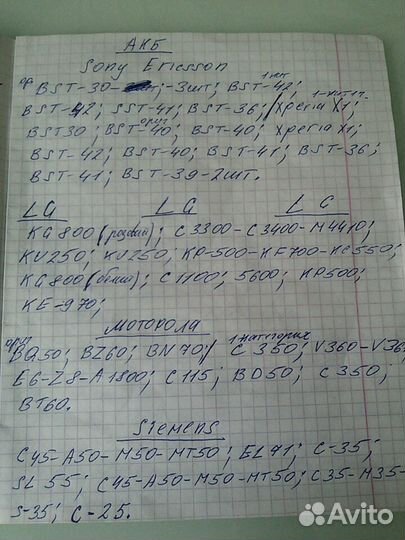 АКБ
Sony Ericsson
ор BST-30- 3шт; BST-42; 1шт
BST-42; SST-41; BST-36; / Xperia X1; 1-катег.
BST30; BST-40; ориг BST-40; Xperia X1;
BST-42; BST-40; BST-41; BST-36;
BST-41; BST-39-2шт.
LG LG LG
KG800 (розовый); C3300-C3400-M4410;
KU250; KU250; KP-500-KF700-KC550;
KG800 (белый); C1100; 5600; KP500;
KE-970;
МОТОРОЛА
ориг BQ50; BZ60; BN70; / C350; 1 категория V360-V36
E6-Z8-A1800; C115; BD50; C350;
BT60.
Siemens
C45-A50-M50-MT50; EL71; C-35;
SL55; C45-A50-M50-MT50; C35-M35-
S-35; C-25.
Avito